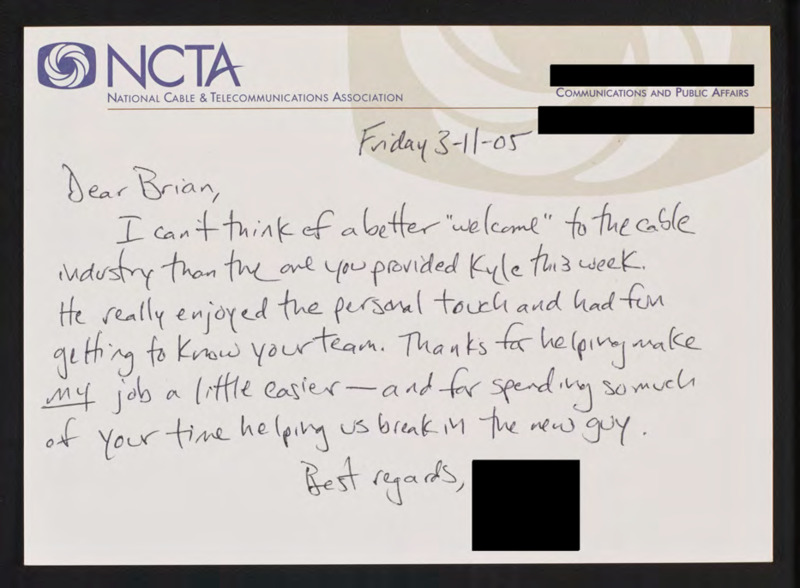 NCTA
NATIONAL CABLE & TELECOMMUNICATIONS ASSOCIATION
COMMUNICATIONS AND PUBLIC AFFAIRS
Friday 3-11-05
Dear Brian,
I can't think of a better "welcome" to the cable
industry than the one you provided Kyle this week.
He really enjoyed the personal touch and had fun
getting to know your team. Thanks for helping make
my job a little easier — and for spending so much
of your time helping us break in the new guy.
Best regards,